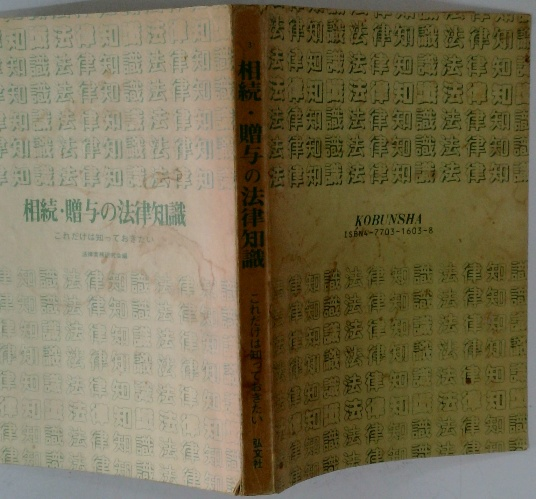 相続・贈与の法律知識
これだけは知っておきたい
相続・贈与の法律知識
これだけは知っておきたい
弘文社
KOBUNSHA
ISBN4-7703-1603-8